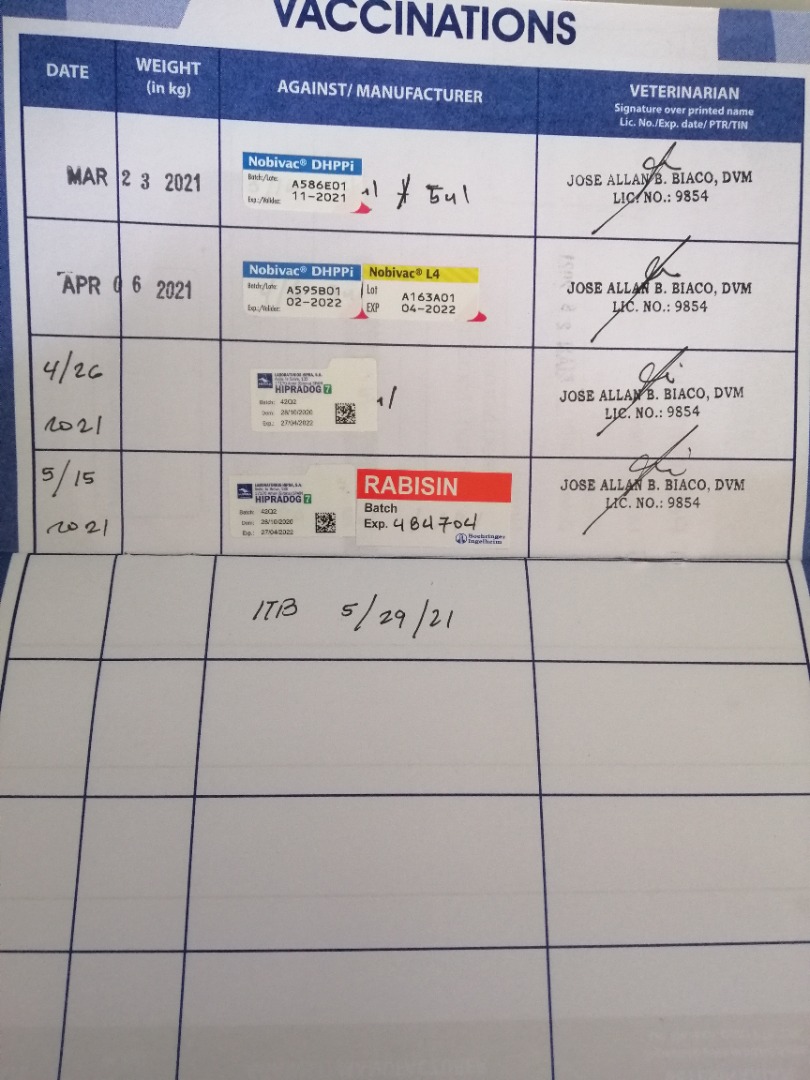 VACCINATIONS
DATE
WEIGHT
(in kg)
AGAINST/ MANUFACTURER
VETERINARIAN
Signature over printed name
Lic. No./Exp. date/ PTR/TIN
MAR 23 2021
Nobivac® DHPPi
Batch/Lote:
A586E01
Exp./Valider:
11-2021
JOSE ALLAN B. BIACO, DVM
LIC. NO.: 9854
APR 06 2021
Nobivac® DHPPi
Batch/Lote:
A595B01
Exp./Valider:
02-2022
Nobivac® L4
Lot A163A01
EXP 04-2022
JOSE ALLAN B. BIACO, DVM
LIC. NO.: 9854
4/26
2021
LABORATORIOS HIPRA, S.A.
HIPRADOG 7
Batch: 42Q2
Dom: 28/10/2020
Exp.: 27/04/2022
JOSE ALLAN B. BIACO, DVM
LIC. NO.: 9854
5/15
2021
LABORATORIOS HIPRA, S.A.
HIPRADOG 7
Batch: 42Q2
Dom: 28/10/2020
Exp.: 27/04/2022
RABISIN
Batch
Exp. 484704
Boehringer
Ingelheim
JOSE ALLAN B. BIACO, DVM
LIC. NO.: 9854
ITB 5/29/21